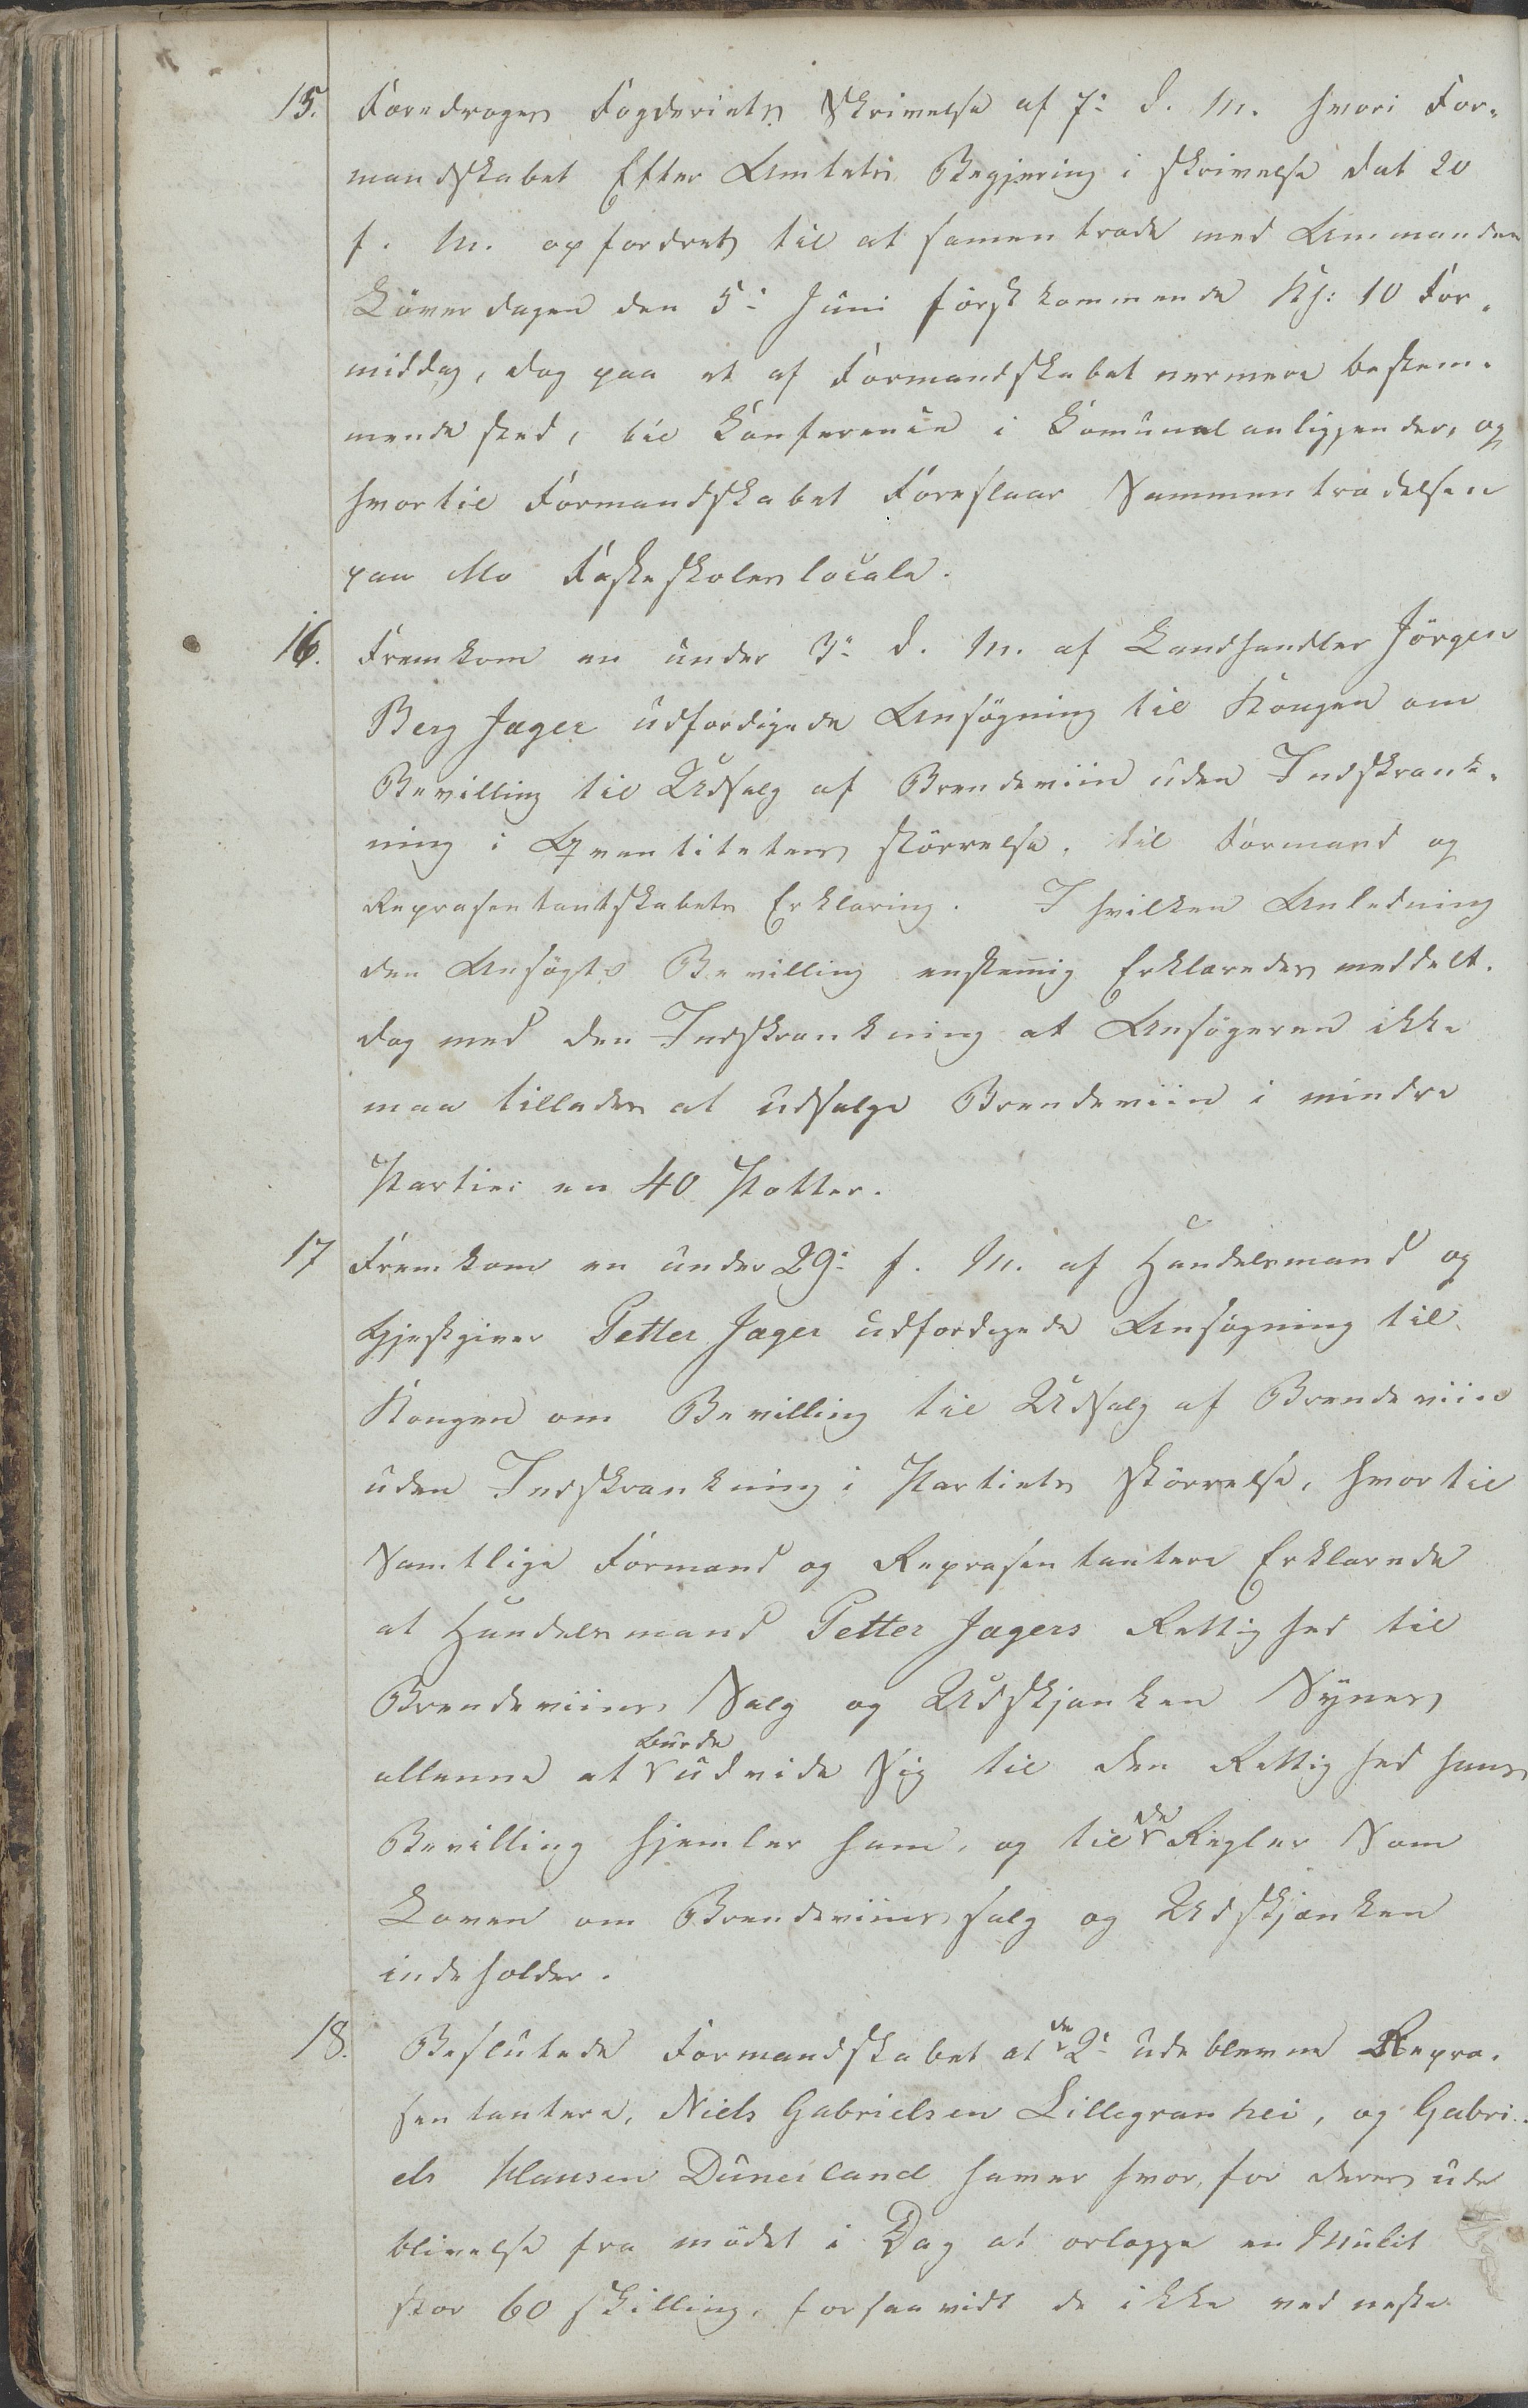 15. Foredroges Fogderiets Skrivelse af 7: d. M. hvori For-
mandskabet Efter Amtets Begjering i skrivelse dat 20
f. M. opfordrets til at samentrade med Ammanden
Löverdagen den 5: Juni först kommende Kl: 10 For-
middag, dog paa et af Formandskabet nermere bestem-
mende sted, til Konference i Komunalanliggender, og
hvortil Formandskabet Foreslaar Sammentradelsen
paa Mo Fasteskoles locale.
16. Fremkom en under 3: d. M. af Landhandler Jörgen
Berg Jager udfordigede Ansögning til Kongen om
Bevilling til Udsalg af Brendeviin uden Indskrank-
ning i Qvantitetens störrelse, til Formand og
Reprasentantskabets Erklaring. I hvilken Anledning
den Ansögte Bevilling enstemig Erklaredes meddelt.
dog med den Indskrankning at Ansögeren ikke
maa tillades at udsalge Brendeviin i mindre
Partier en 40 Potter.
17 Fremkom en under 29: f. M. af Handelsmand og
Gjestgiver Petter Jager udfordigede Ansögning til
Kongen om Bevilling til Udsalg af Brendeviin
uden Indskrankning i Partiets störrelse, hvortil
Samtlige Formand og Reprasentantere Erklarede
at Handelsmand Petter Jagers Rettighed til
Brendeviins Salg og Udskjanken Synes
allenne at burde udvide Sig til den Rettighed hans
Bevilling hjemler ham, og til de Regler Som
Loven om Brendeviins salg og Udskjanken
indeholder.
18. Beslutede Formandskabet at de 2: udeblevne Repra-
sentantere, Niels Gabrielsen Lillegranhei, og Gabri-
els Klausen Dunerland haver hver, for deres ude
blivelse fra mödet i Dag at erlagge en Mulct
stor 60 skilling, forsaavidt de ikke ved neste